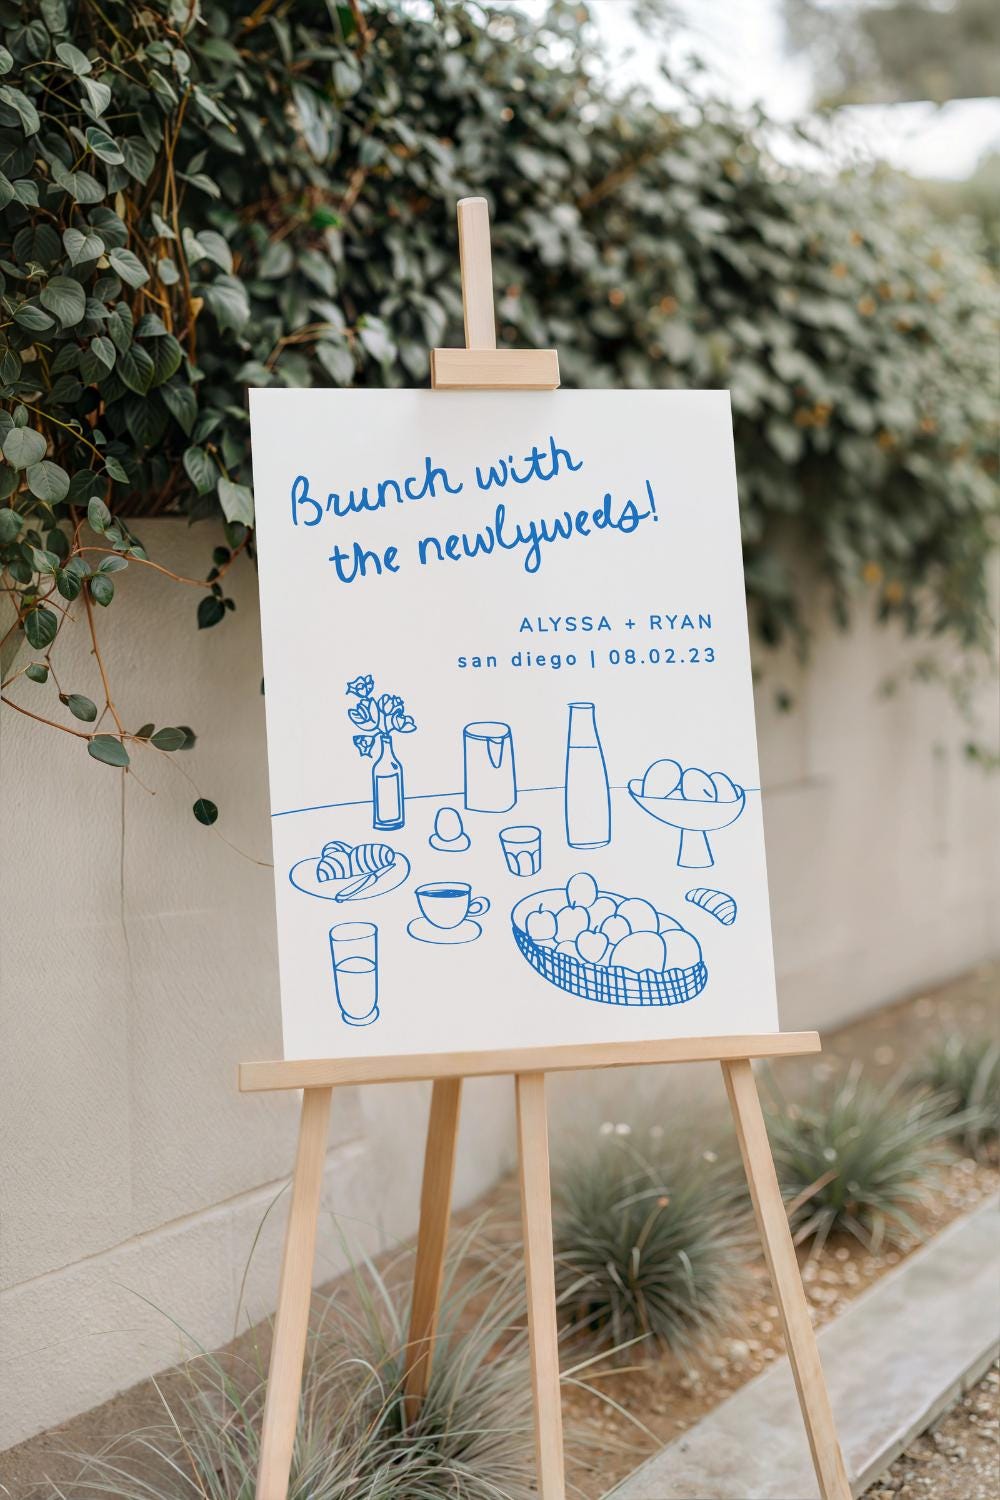 Brunch with
the newlyweds!
ALYSSA + RYAN
san diego | 08.02.23